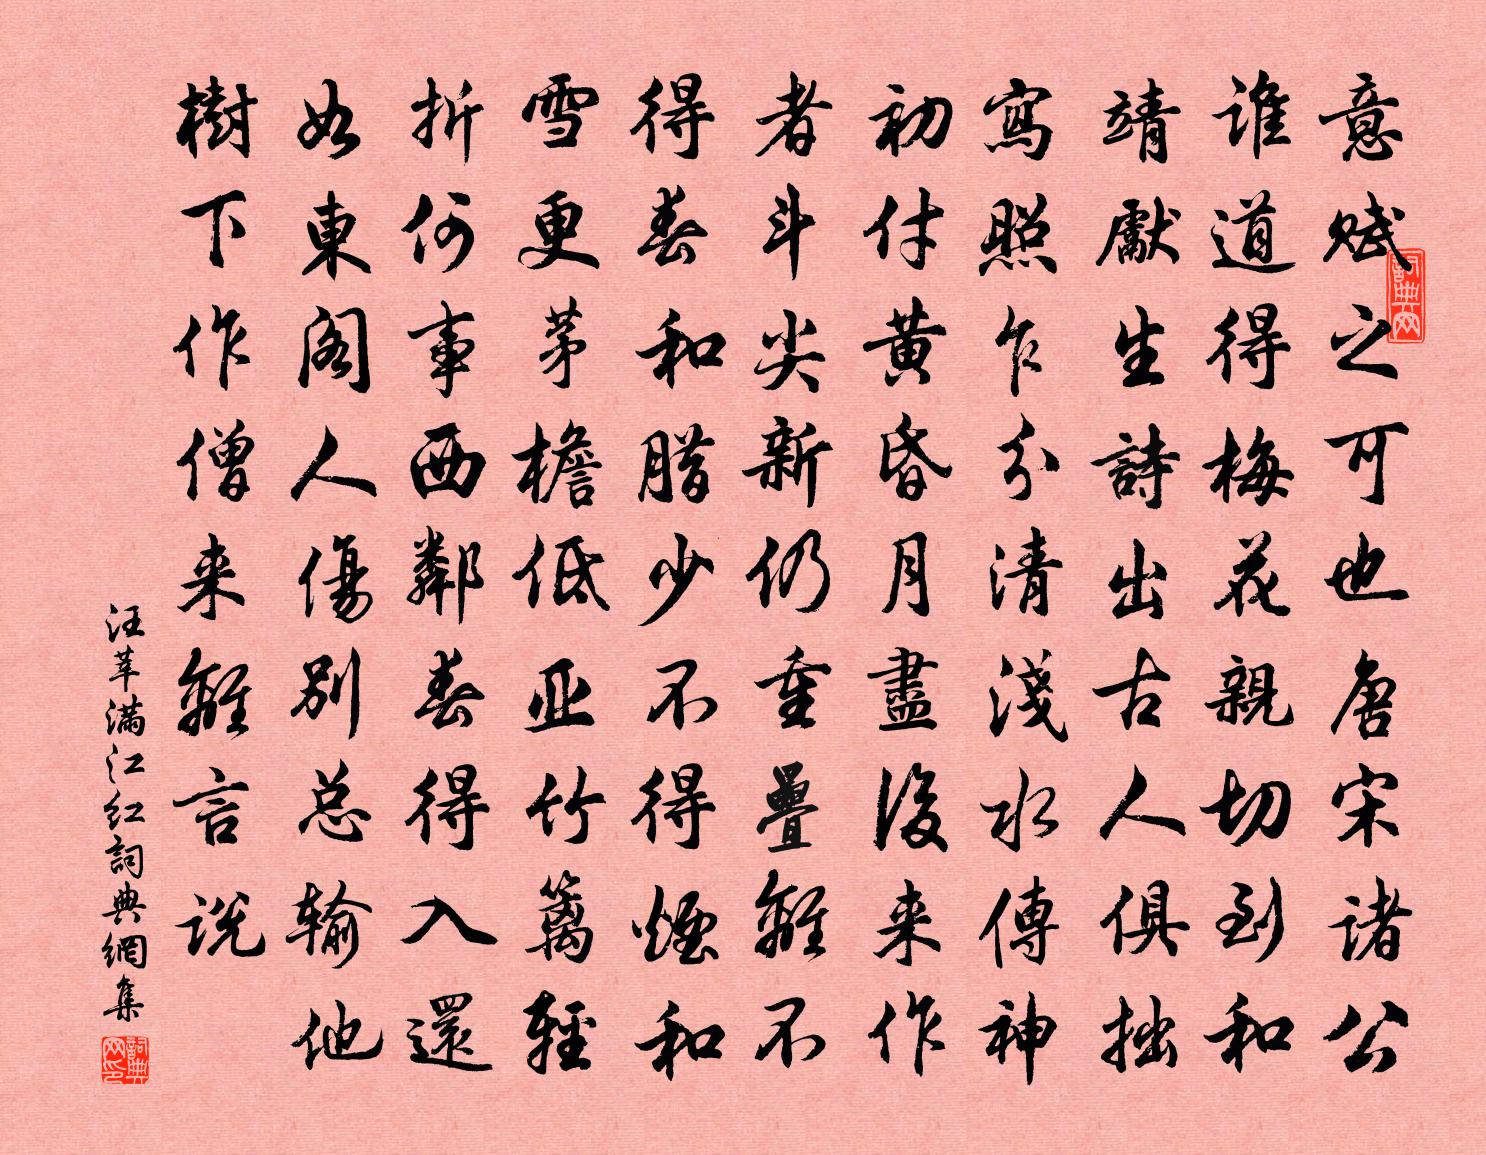 意赋之可也唐宋诸公
谁道得梅花親切到和
靖獻生詩出古人俱拙
寫照乍分清淺水傳神
初付黄昏月盡後来作
者斗尖新仍重疊離不
得春和腊少不得煙和
雪更茅檐低亚竹篱輕
折何事西鄰春得入還
如東阁人傷别总输他
樹下作僧来離言说
汪莘满江红詞典網集
詞典网
詞典网印